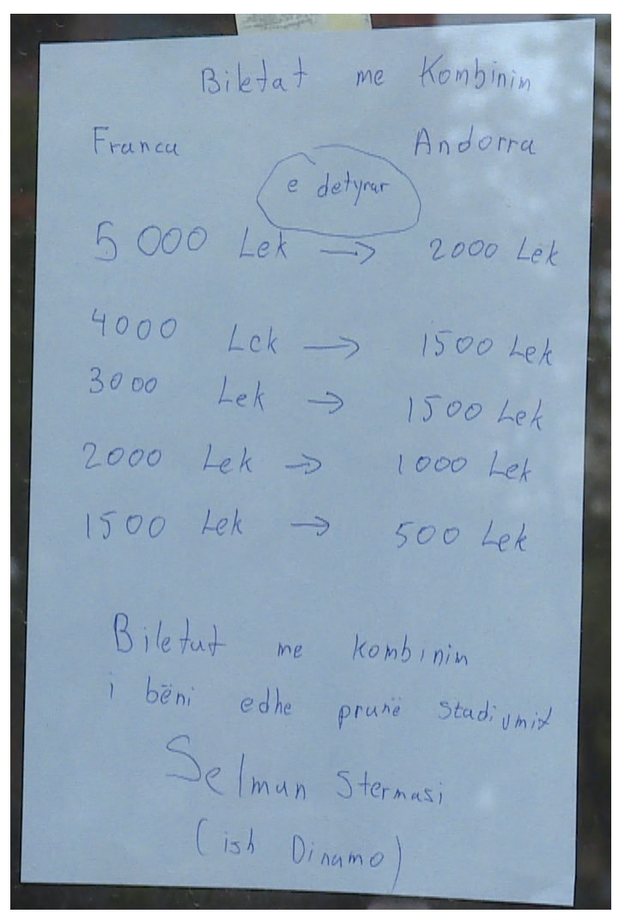 Biletat me Kombinim
Franca Andorra
e detyrar
5 000 Lek → 2000 Lek
4000 Lek → 1500 Lek
3000 Lek → 1500 Lek
2000 Lek → 1000 Lek
1500 Lek → 500 Lek
Biletat me kombinim
i bëni edhe pranë stadiumit
Selman Stermasi
(ish Dinamo)